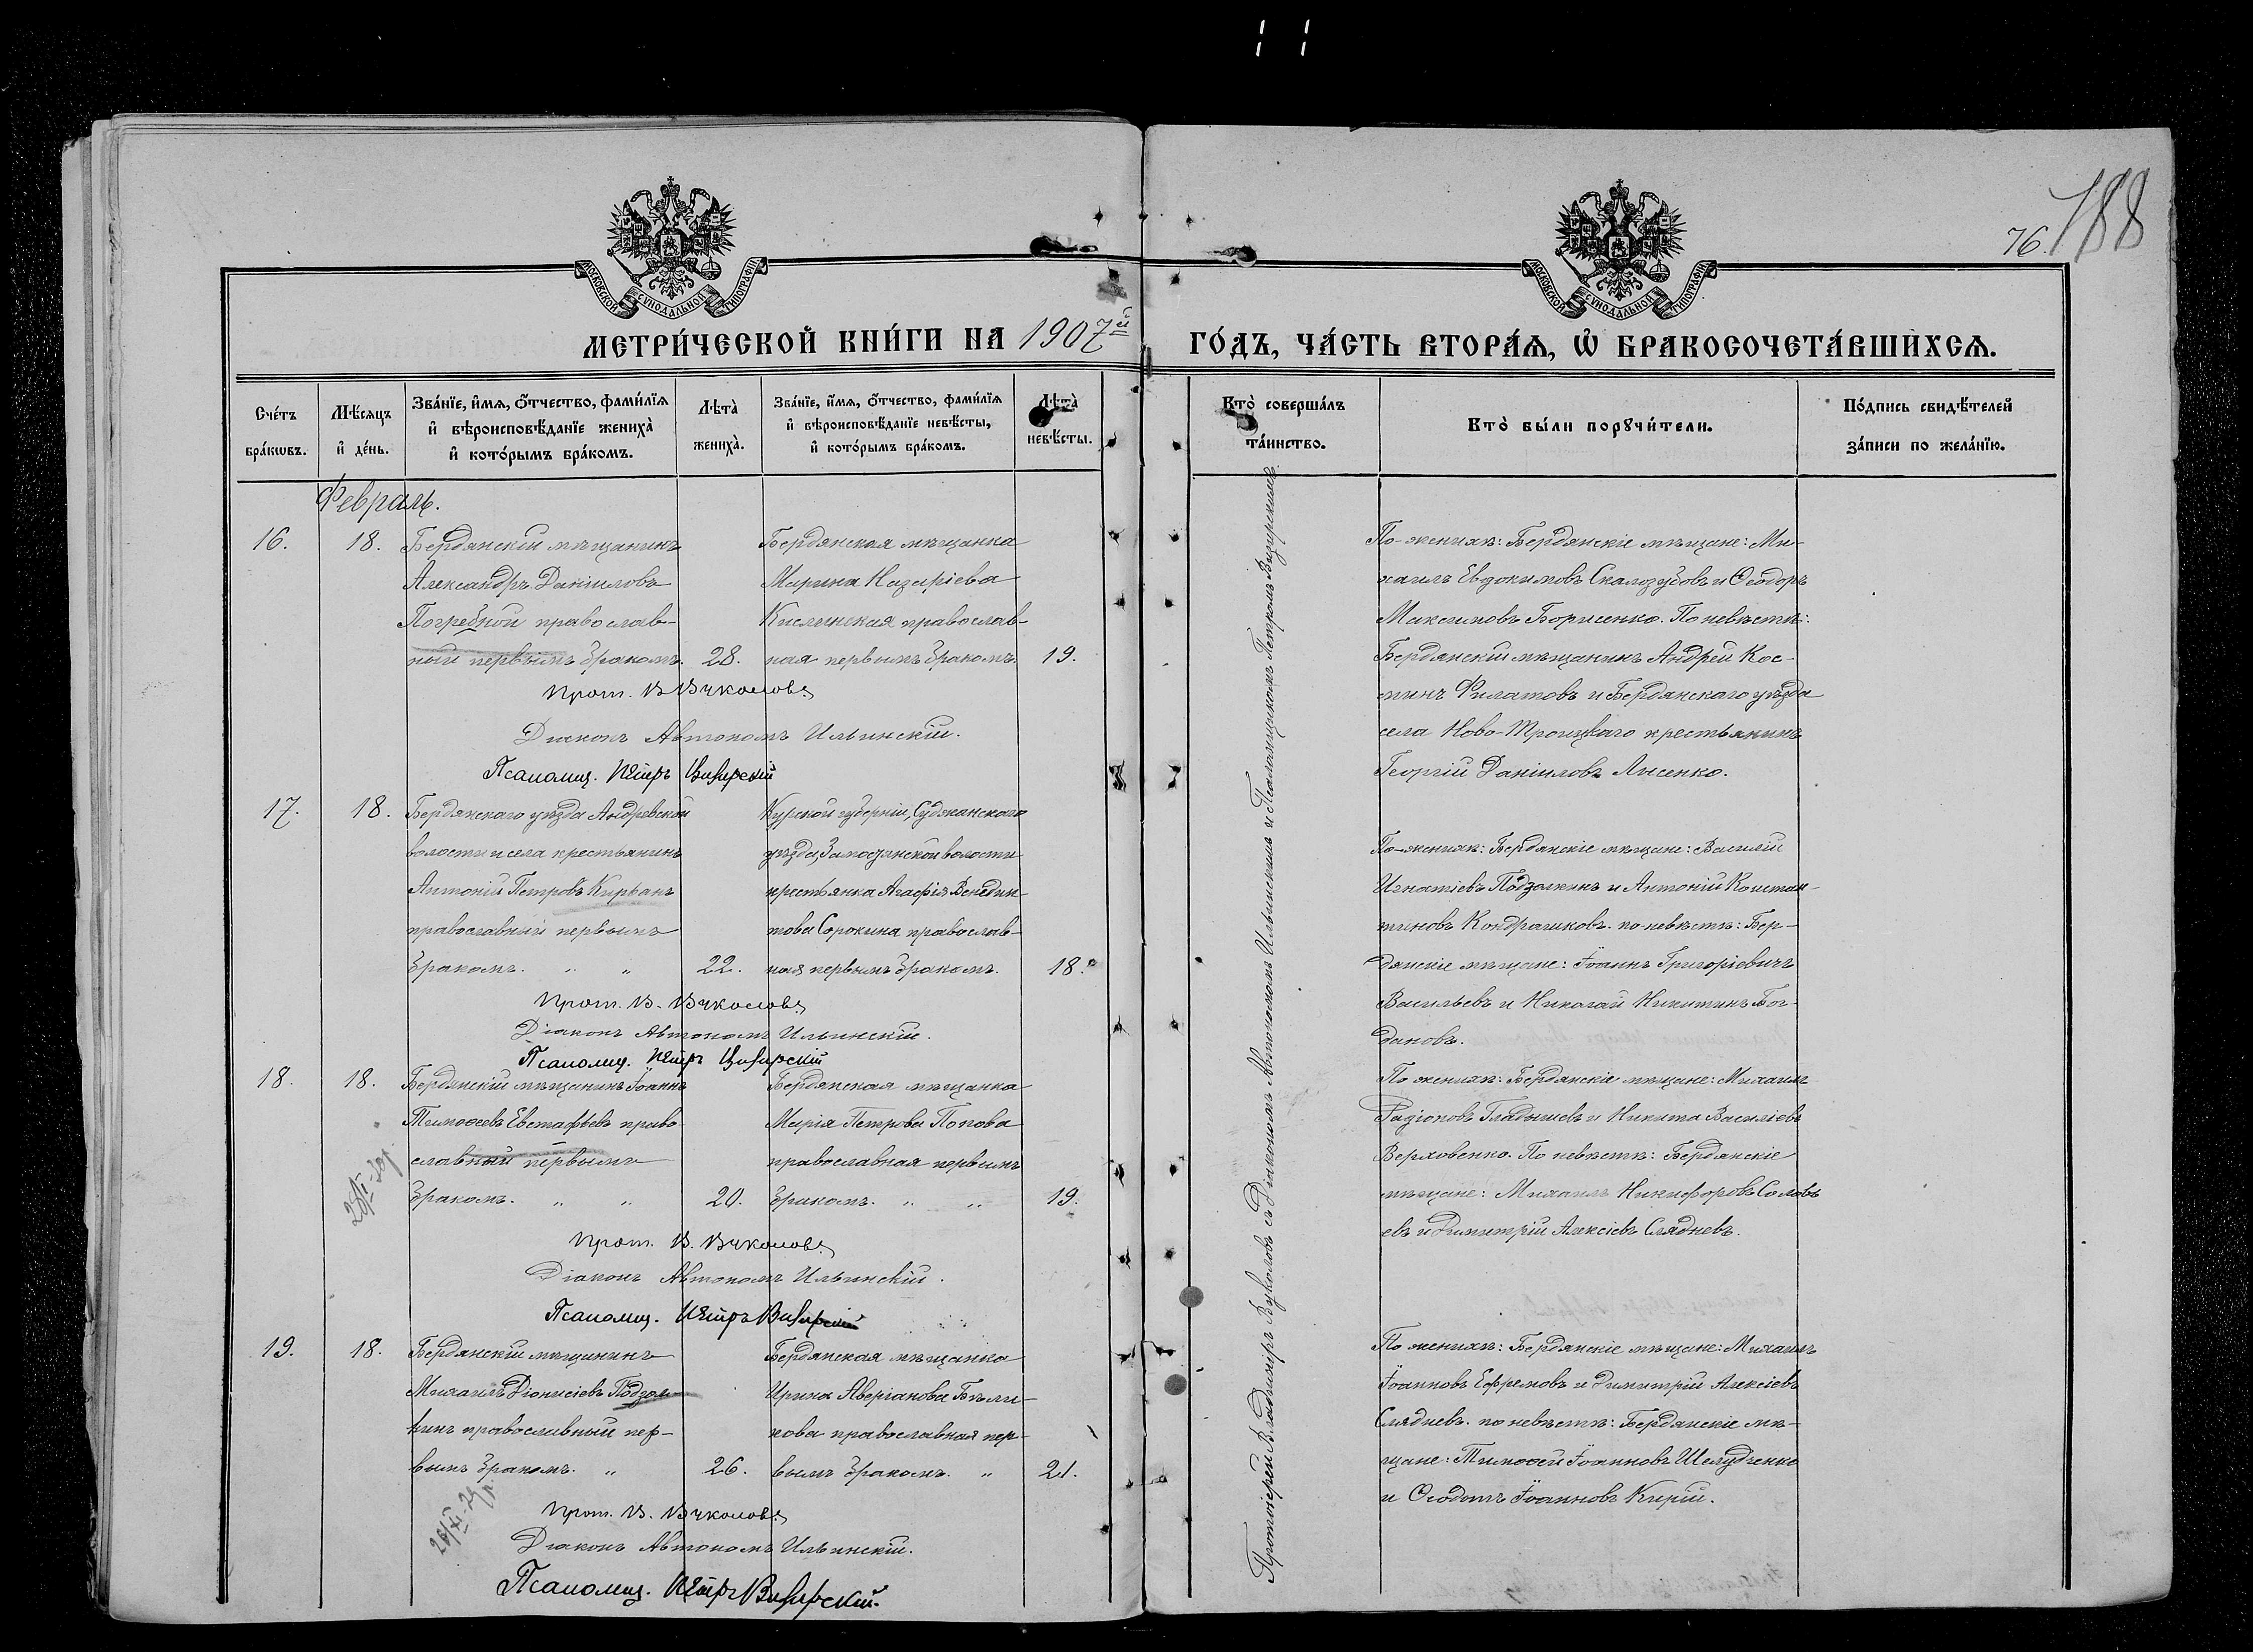 188
76.
МОСКОВСКОЙ СѴНОДАЛЬНОЙ ТИПОГРАФІИ
МОСКОВСКОЙ СѴНОДАЛЬНОЙ ТИПОГРАФІИ
МЕТРИ́ЧЕСКОЙ КНИ́ГИ НА 1907й ГО́ДЪ, ЧА́СТЬ ВТОРА́Ѧ, Ѡ҆ БРАКОСОЧЕТА́ВШИХСѦ.
Сче́тъ бра́кѡвъ.
Мѣ́сѧцъ и҆ де́нь.
Зва́нїе, и҆́мѧ, ѻ҆́тчество, фами́лїѧ и҆ вѣроисповѣ́данїе жениха̀ и҆ кото́рымъ бра́комъ.
Лѣта̀ жениха̀.
Зва́нїе, и҆́мѧ, ѻ҆́тчество, фами́лїѧ и҆ вѣроисповѣ́данїе невѣ́сты, и҆ кото́рымъ бра́комъ.
Лѣта̀ невѣ́сты.
Кто̀ соверша́лъ та́инство.
Кто̀ бы́ли порꙋчи́тели.
По́дпись свидѣ́телей за́писи по жела́нїю.
Февраль.
16.
18.
Бердянскій мѣщанинъ
Александръ Даніиловъ
Погребной православ-
ный первымъ бракомъ.
28.
Бердянская мѣщанка
Марина Назаріева
Кислинская православ-
ная первымъ бракомъ.
19.
По-женихѣ: Бердянскіе мѣщане: Ми-
хаилъ Евдокимовъ Скалозубовъ и Ѳеодоръ
Максимовъ Борисенко. По невѣстѣ:
Бердянскій мѣщанинъ Андрей Кос-
минъ Филатовъ и Бердянскаго уѣзда
села Ново-Троицкаго крестьянинъ
Георгій Даніиловъ Лисенко.
Прот. В Вуколовъ
Діаконъ Автономъ Ильинскій.
Псаломщ. Петръ Визирскій
17.
18.
Бердянскаго уѣзда Андревской
волости и села крестьянинъ
Антоній Петровъ Кирванъ
православный первымъ
бракомъ. " "
22.
Курской губерніи, Суджанскаго
уѣзда, Замостянской волости
крестьянка Агафія Венедик-
това Сорокина православ-
ная первымъ бракомъ.
18.
По-женихѣ: Бердянскіе мѣщане: Василій
Игнатіевъ Подзолкинъ и Антоній Констан-
тиновъ Кондрашковъ. по невѣстѣ: Бер-
дянскіе мѣщане: Іоаннъ Григоріевичъ
Васильевъ и Николай Никитинъ Бог-
дановъ.
Прот. В. Вуколовъ
Діаконъ Автономъ Ильинскій.
Псаломщ. Петръ Визирскій
18.
18.
Бердянскій мѣщанинъ Іоаннъ
Тимоѳеевъ Евстафьевъ право-
славный первымъ
бракомъ. " "
20.
Бердянская мѣщанка
Марія Петрова Попова
православная первымъ
бракомъ. " "
19.
По женихѣ: Бердянскіе мѣщане: Михаилъ
Радіоновъ Гладышевъ и Никита Василіевъ
Верховенко. По невѣстѣ: Бердянскіе
мѣщане: Михаилъ Никифоровъ Соловь
евъ и Димитрій Алексіевъ Сляднев​ъ.
Прот. В. Вуколовъ
Діаконъ Автономъ Ильинскій.
Псаломщ. Петръ Визирскій
19.
18.
Бердянскій мѣщанинъ
Михаилъ Діонисіевъ Подзол-
кинъ православный пер-
вымъ бракомъ. "
26.
Бердянская мѣщанка
Ирина Аверіанова Бѣли-
кова православная пер-
вымъ бракомъ. "
21.
По женихѣ: Бердянскіе мѣщане: Михаилъ
Іоанновъ Ефремовъ и Димитрій Алексіевъ
Слядневъ. по невѣстѣ: Бердянскіе мѣ-
щане: Тимоѳей Іоанновъ Шелудченко
и Ѳеодотъ Іоанновъ Кирій.
Прот. В. Вуколовъ
Діаконъ Автономъ Ильинскій.
Псаломщ. Петръ Визирскій.
Протоіерей Владиміръ Вуколовъ съ Діакономъ Автономомъ Ильинскимъ и Псаломщикомъ Петромъ Визирскимъ.